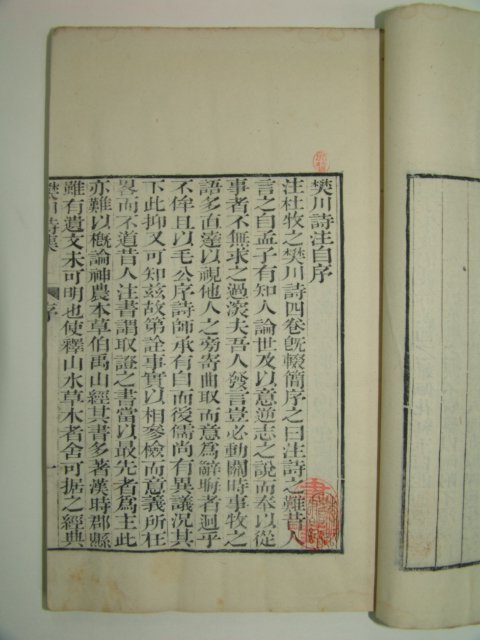 樊川詩注自序
注杜牧之樊川詩四卷旣輟簡序之曰注詩之難昔人
言之自孟子有知人論世及以意逆志之說而奉以從
事者不無求之過深夫吾人發言豈必動關時事牧之
語多直達以視他人之旁寄曲取而意爲辭晦者迥乎
不侔且以毛公序詩師承有自而後儒尚有異議況其
下此抑又可知茲故第詮事實以相參檢而意義所在
畧而不道昔人注書謂取證之書當以最先者爲主此
亦難以槪論神農本草伯禹山經其書多著漢時郡縣
雖有遺文未可明也使釋山水草木者舍可据之經典
樊川詩集 序 一